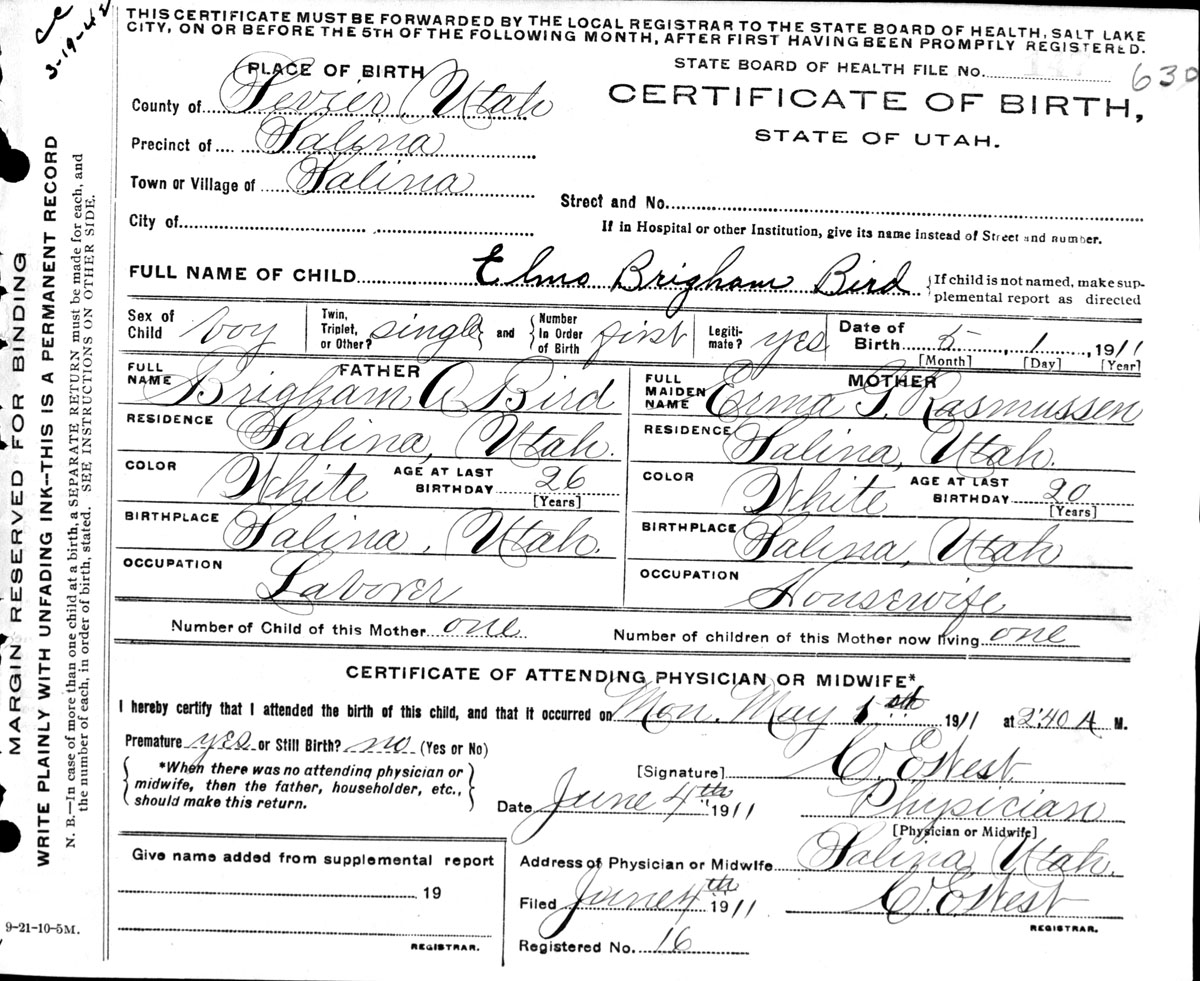 cc
3-19-42
THIS CERTIFICATE MUST BE FORWARDED BY THE LOCAL REGISTRAR TO THE STATE BOARD OF HEALTH, SALT LAKE
CITY, ON OR BEFORE THE 5TH OF THE FOLLOWING MONTH, AFTER FIRST HAVING BEEN PROMPTLY REGISTERED.
PLACE OF BIRTH
STATE BOARD OF HEALTH FILE NO. 630
County of Sevier, Utah
CERTIFICATE OF BIRTH,
STATE OF UTAH.
Precinct of Salina
Town or Village of Salina
Street and No.
City of
If in Hospital or other Institution, give its name instead of Street and number.
FULL NAME OF CHILD Elmo Brigham Bird {If child is not named, make sup-
plemental report as directed
Sex of Child boy Twin, Triplet, or Other? single and Number In Order of Birth first Legiti-mate? yes Date of Birth 5, 1, 1911
[Month] [Day] [Year]
FATHER
FULL NAME Brigham A Bird
RESIDENCE Salina, Utah.
COLOR White AGE AT LAST BIRTHDAY 26
[Years]
BIRTHPLACE Salina, Utah.
OCCUPATION Laborer
MOTHER
FULL MAIDEN NAME Erma T. Rasmussen
RESIDENCE Salina, Utah.
COLOR White AGE AT LAST BIRTHDAY 20
[Years]
BIRTHPLACE Salina, Utah
OCCUPATION Housewife
Number of Child of this Mother one Number of children of this Mother now living one
CERTIFICATE OF ATTENDING PHYSICIAN OR MIDWIFE*
I hereby certify that I attended the birth of this child, and that it occurred on Mon. May 1st 1911 at 2:40 A M.
Premature yes or Still Birth? no (Yes or No)
{*When there was no attending physician or
midwife, then the father, householder, etc.,
should make this return.}
[Signature] C. E West.
Date June 4th 1911 Physician
[Physician or Midwife]
Give name added from supplemental report
19
REGISTRAR.
Address of Physician or Midwife Salina, Utah.
Filed June 4th 1911 C. E West
REGISTRAR.
Registered No. 16
MARGIN RESERVED FOR BINDING
WRITE PLAINLY WITH UNFADING INK--THIS IS A PERMANENT RECORD
N. B.—In case of more than one child at a birth, a SEPARATE RETURN must be made for each, and
the number of each, in order of birth, stated. SEE INSTRUCTIONS ON OTHER SIDE.
9-21-10-5M.